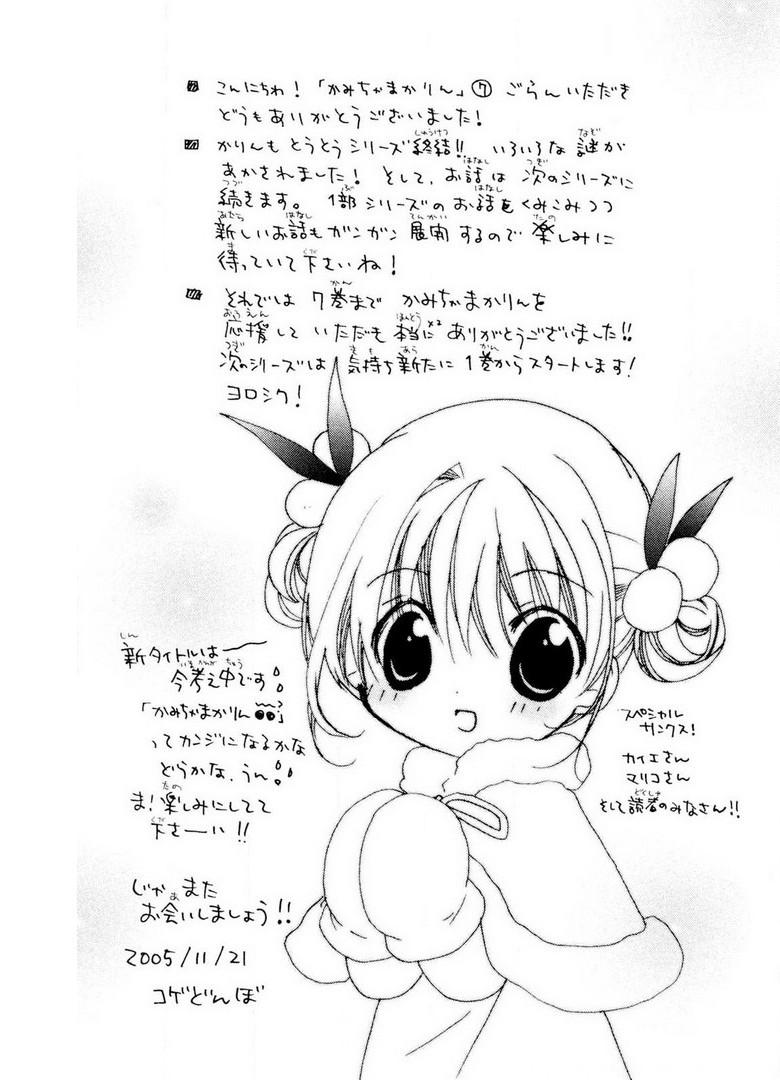 こんにちわ!「かみちゃまかりん」⑦ ごらんいただき
どうもありがとうございました!
かりんもとうとうシリーズ終結!! いろいろな謎が
あかされました! そして、お話は次のシリーズに
続きます。1部シリーズのお話をくみこみつつ
新しいお話もガンガン展開するので楽しみに
待っていて下さいね!
それでは7巻まで かみちゃまかりんを
応援して いただき 本当に×2 ありがとうございました!!
次のシリーズは 気持ち新たに 1巻からスタートします!
ヨロシク!
新タイトルは——
今考え中です
「かみちゃまかりん
ってカンジになるかな
どうかな、うん
ま!楽しみにしてて
下さーい!!
じゃあまた
お会いしましょう!!
2005/11/21
コゲどんぼ
スペシャル
サンクス!
カイエさん
マリコさん
そして読者のみなさん!!